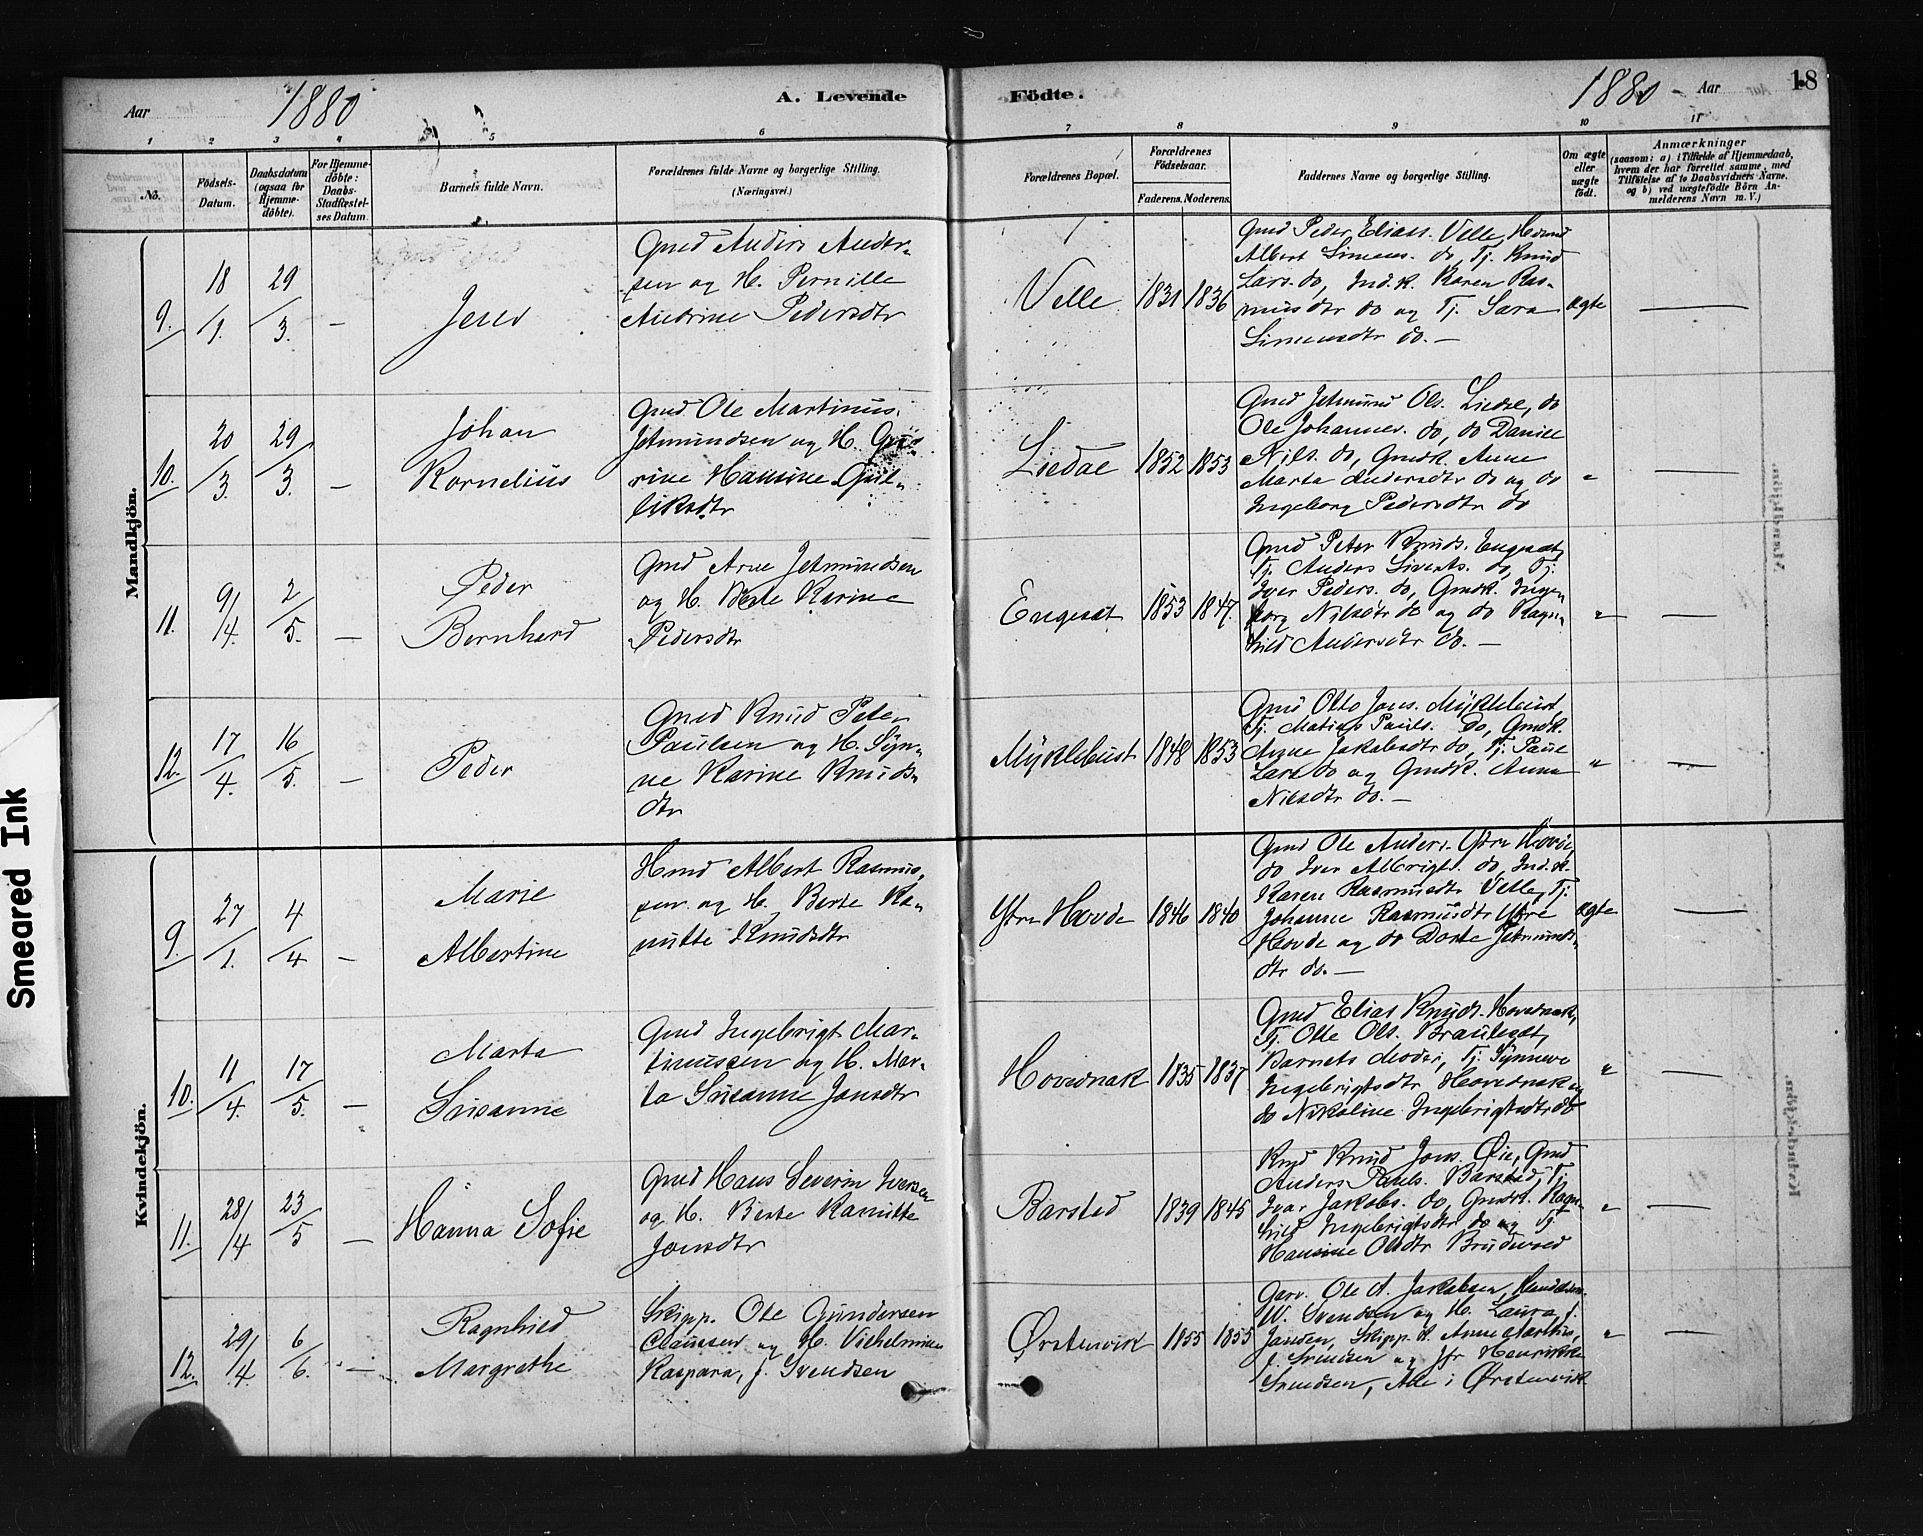 Aar 1880 A. Levende Födte. 1880 Aar 18
1 2 3 4 5 6 7 8 9 10 11
No.
Födsels-Datum.
Daabsdatum (ogsaa for Hjemme-döbte).
For Hjemme-döbte: Daabs-Stadfæstel-ses Datum.
Barnets fulde Navn.
Forældrenes fulde Navne og borgerlige Stilling.
(Næringsvei.)
Forældrenes Bopæl.
Forældrenes Födselsaar.
Faderens. Moderens.
Faddernes Navne og borgerlige Stilling.
Om ægte eller uægte födt.
Anmærkninger
(saasom: a) i Tilfælde af Hjemmedaab,
hvem der har forrettet samme, med
Tilföielse af to Daabsvidners Navne,
og b) ved uægtefödte Börn An-
melderens Navn m. V.)
Mandkjön.
9. 18/1. 29/3. — Jens
Gmd Anders Ander-
sen og H. Pernille
Andrine Pedersdtr
Velle 1831 1836
Gmd Peder Eliass. Velle, Hmd
Albert Simens. do, Tj. Knud
Lars. do, Ind.k. Karen Ras-
musdtr do og Tj. Sara
Simensdtr do. —
ægte —
10. 20/3. 29/3. — Johan
Kornelius
Gmd Ole Martinus
Jetmundsen og H.
rine Hansine Gul-
liksdtr
Liedal 1852 1853
Gmd Jetmund Ols. Liedal, do
Ole Johannes. do, do Daniel
Nils. do, Gmdk. Anne
Marta Andersdtr do og do
Ingeborg Pedersdtr do
" —
11. 9/4. 2/5. — Peder
Bernhard
Gmd Arne Jetmundsen
og H. Berte Karine
Pedersdtr
Engeset 1853 1847.
Gmd Peter Knuds. Engeset,
Tj. Anders Siverts. do, Tj.
Iver Peders. do, Gmdk. Inge-
borg Nilsdtr do og do Ragn-
hild Andersdtr do. —
" —
12. 17/4. 16/5. — Peder
Gmd Knud Peter
Paulsen og H. Syn-
ve Karine Knuds-
dtr
Myklebust 1848 1853
Gmd Otto Jons. Myklebust,
Tj. Matias Pauls. Do, Gmdk.
Anne Jakobsdtr do, Tj. Paul
Lars. do og Gmdk. Anne
Nilsdtr do. —
" —
Kvindekjön.
9. 27/1. 4/4 — Marie
Albertine
Hmd Albert Rasmus-
sen og H. Berte Ka-
nutte Knudsdtr
Ytre Hovde 1846 1840
Gmd Ole Anders. Ytre Hovde,
do Iver Albrigts. do, Ind.k.
Karen Rasmusdtr Velle, Tj.
Johanne Rasmusdtr Ytre
Hovde og do Dorte Jetmunds-
dtr do. —
ægte —
10. 11/4. 17/5. — Marta
Susanne
Gmd Ingebrigt Mar-
tinussen og H. Mar-
ta Susanne Jonsdtr
Hovednak 1835 1837
Gmd Elias Knuds. Hovednak,
Tj. Ole Ols. Brauteset,
Barnets Moder, Tj. Synneve
Ingebrigtsdtr Hovednak og
do Nikoline Ingebrigtsdtr do
" —
11. 28/4 23/5 — Hanna Sofie
Gmd Hans Severin Iversen
og H. Berte Kanutte
Jonsdtr
Barstad 1839 1845
Knud Jons. Øie, Gmd
Anders Pauls. Barstad, Tj.
Ivar Jakobs. do, Gmdk. Ragn-
hild Ingebrigtsdtr do og Tj.
Hansine Olsdtr
" —
12. 29/4. 6/6. — Ragnhild
Margrethe
Skipp. Ole Gundersen
Claussen og H. Vilhelmine
Kaspara, f. Svendsen
Ørstenvik 1855 1855
Garv. Ole A. Jakobsen,
W. Svendsen og H. Laura f.
Jansen, Skipp.k. Anne Marthie,
f. Svendsen og Jfr Henrikke
Svendsen, Alle i Ørstenvik
" —
Smeared Ink